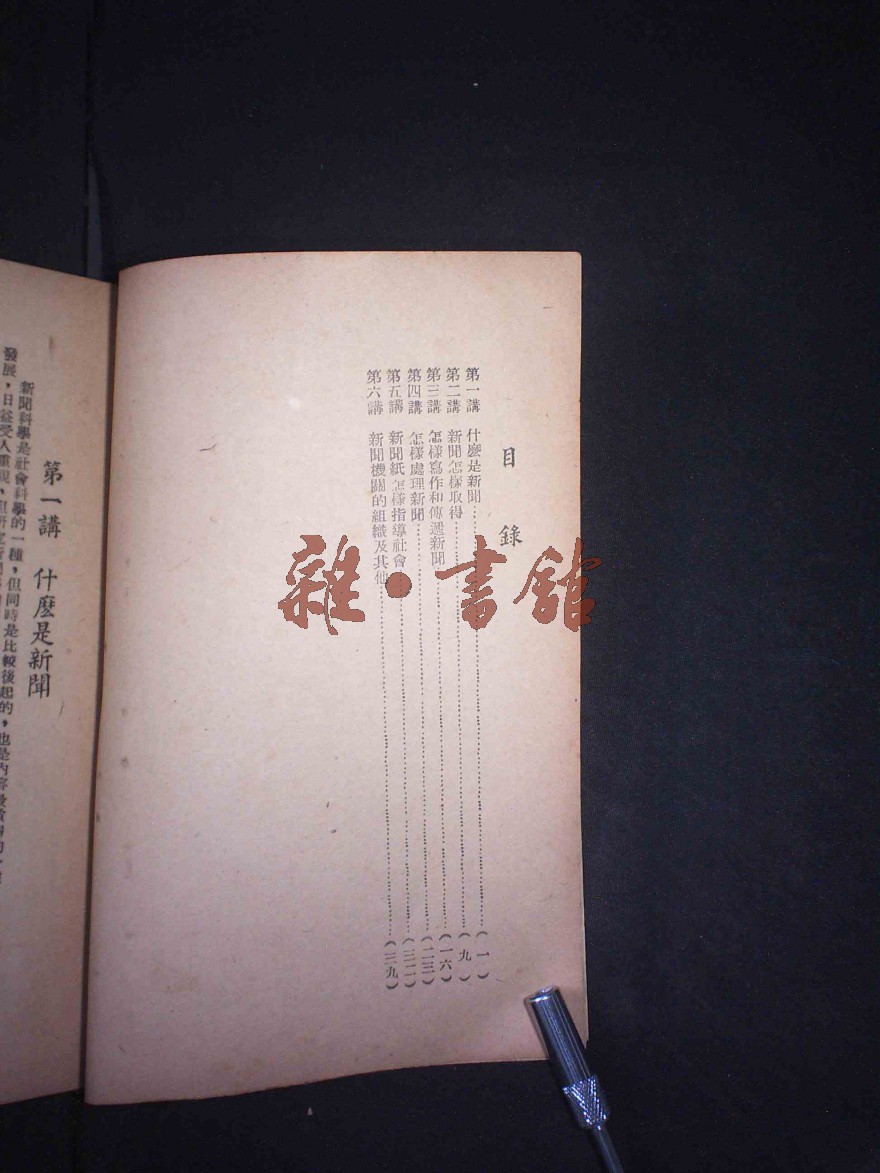 目錄
第一講 什麼是新聞……(一)
第二講 新聞怎樣取得……(九)
第三講 怎樣寫作和傳遞新聞……(一六)
第四講 怎樣處理新聞……(二三)
第五講 新聞紙怎樣指導社會……(三二)
第六講 新聞機關的組織及其他……(三九)
第一講 什麼是新聞
新聞科學是社會科學的一種，但同時是比較後起的，也是內容最
發展，日益受人重視，
雜·書館